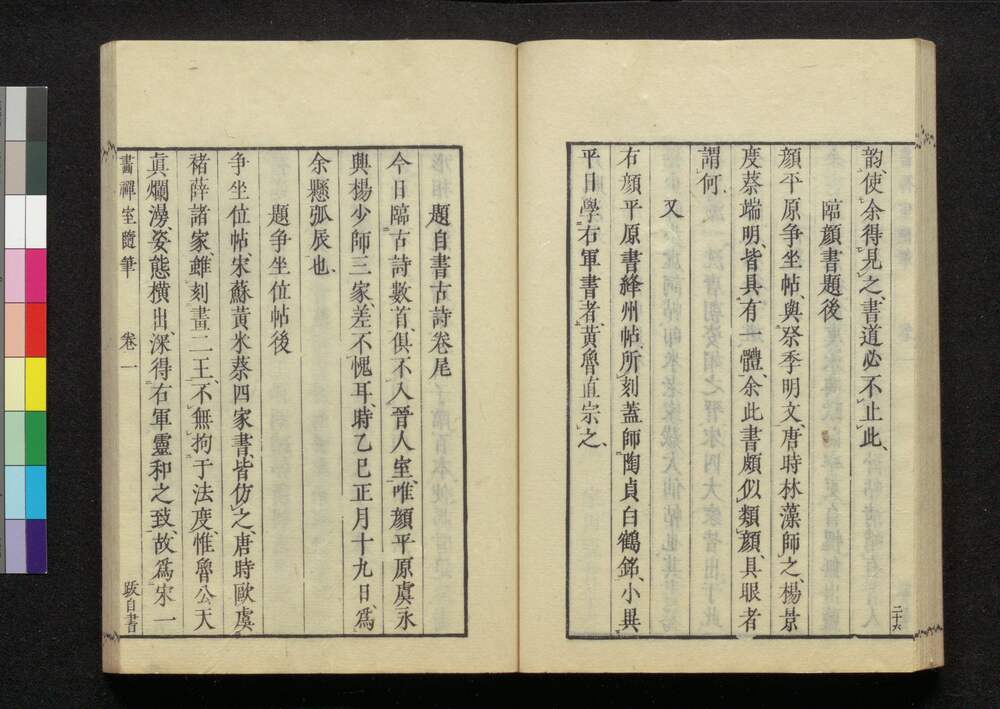 韵、使余得見之、書道必不止此、
臨顏書題後
顏平原爭坐帖、與祭季明文、唐時林藻師之、楊景
度蔡端明、皆具有一體、余此書頗似類顏、具眼者
謂何、
又
右顏平原書絳州帖、所刻蓋師陶貞白鶴銘、小異
平日學右軍書者、黃魯直宗之、
二十六
題自書古詩卷尾
今日臨古詩數首、俱不入晉人室、唯顏平原虞永
興楊少師三家、差不愧耳、時乙巳正月十九日、爲
余懸弧辰也、
題爭坐位帖後
爭坐位帖、宋蘇黃米蔡四家書、皆仿之、唐時歐虞
褚薛諸家、雖刻畫二王、不無拘于法度、惟魯公天
眞爛漫、姿態橫出、深得右軍靈和之致、故爲宋一
畫禪室隨筆 卷一 跋自書